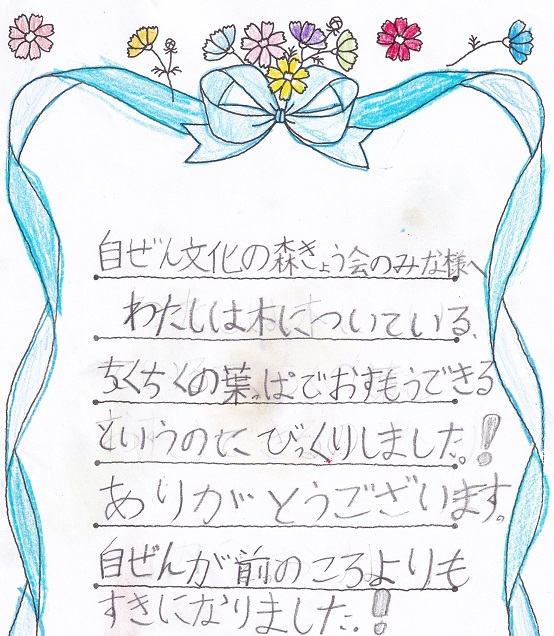 自ぜん文化の森きょう会のみな様へ
わたしは木についている、
ちくちくの葉っぱでおすもうできる
というのにびっくりしました。!
ありがとうございます。
自ぜんが前のころよりも
すきになりました。!